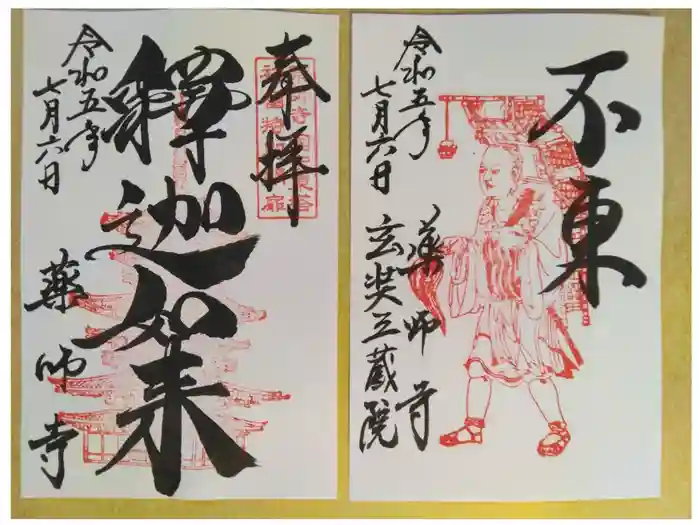 奉拝
釋迦如来
令和五年
七月六日
薬師寺
不東
令和五年
七月六日
薬師寺
玄奘三蔵院